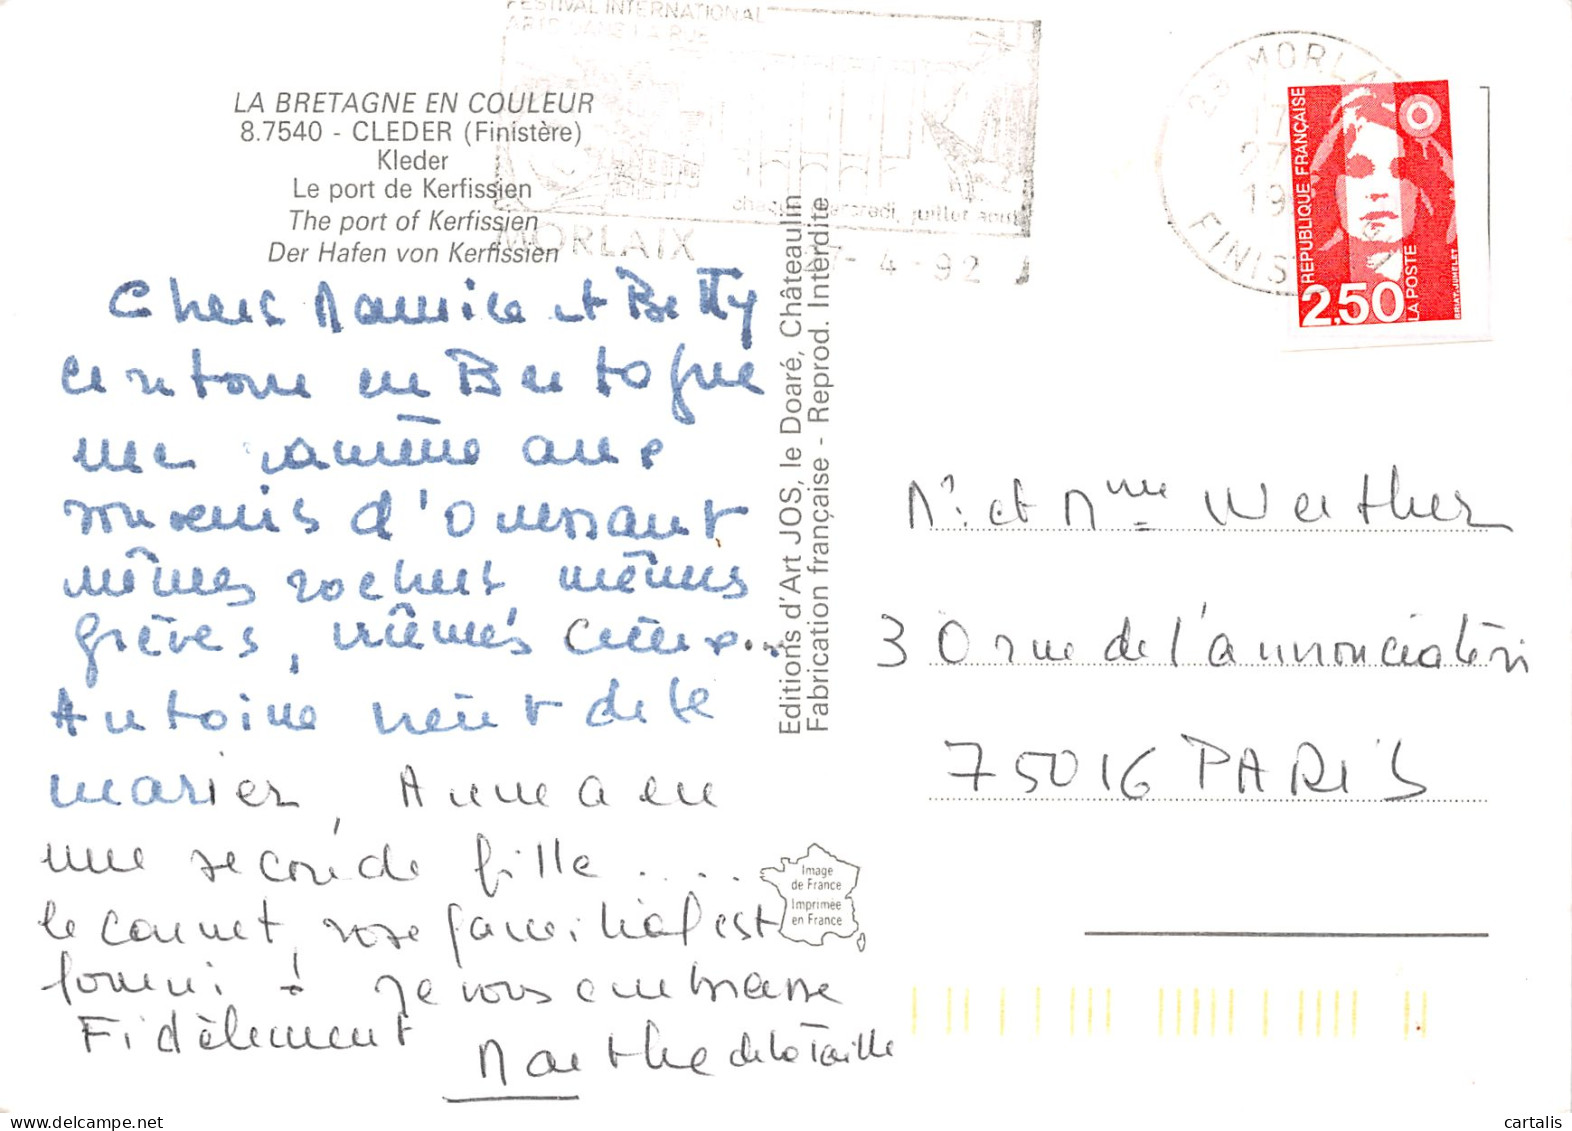 FESTIVAL INTERNATIONAL
ARTS DANS LA RUE
chaque mercredi, juillet août
MORLAIX
27-4-92
29 MORLAIX
17
27
19
FINIST
REPUBLIQUE FRANÇAISE
2,50
LA POSTE
BRIAT-JUMELET
LA BRETAGNE EN COULEUR
8.7540 - CLEDER (Finistère)
Kleder
Le port de Kerfissien
The port of Kerfissien
Der Hafen von Kerfissien
Chers Maurice et Betty
en Bretagne
souvenirs d'Ouessant
mêmes rochers mêmes
grèves, mêmes
Antoine vient de se
marier, Anne a eu
une seconde fille ....
le carnet rose familial est
fourni ! Je vous embrasse
Fidèlement
Marthe de la Taille
Editions d'Art JOS, le Doaré, Châteaulin
Fabrication française - Reprod. Interdite
Image
de France
Imprimée
en France
Mr et Mme Werther
30 rue de l'annonciation
75016 PARIS
cartalis